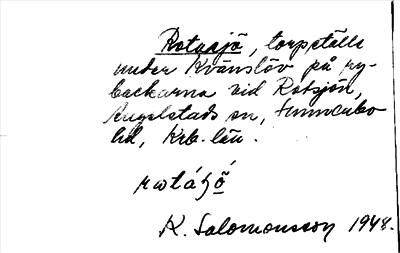 Rotasjö, torpställe
under Kvänslöv på ry-
backarna vid Rotsjön,
Angelstads sn, Sunnerbo
hd, Krb. län.
rωtáʒö̀
K. Salomonsson 1948.